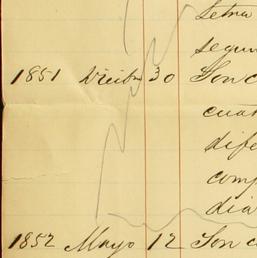 Letra
segun
1851 Dicibe 30 Son c
cuar
dife
comp
dia
1852 Mayo 12 Son c